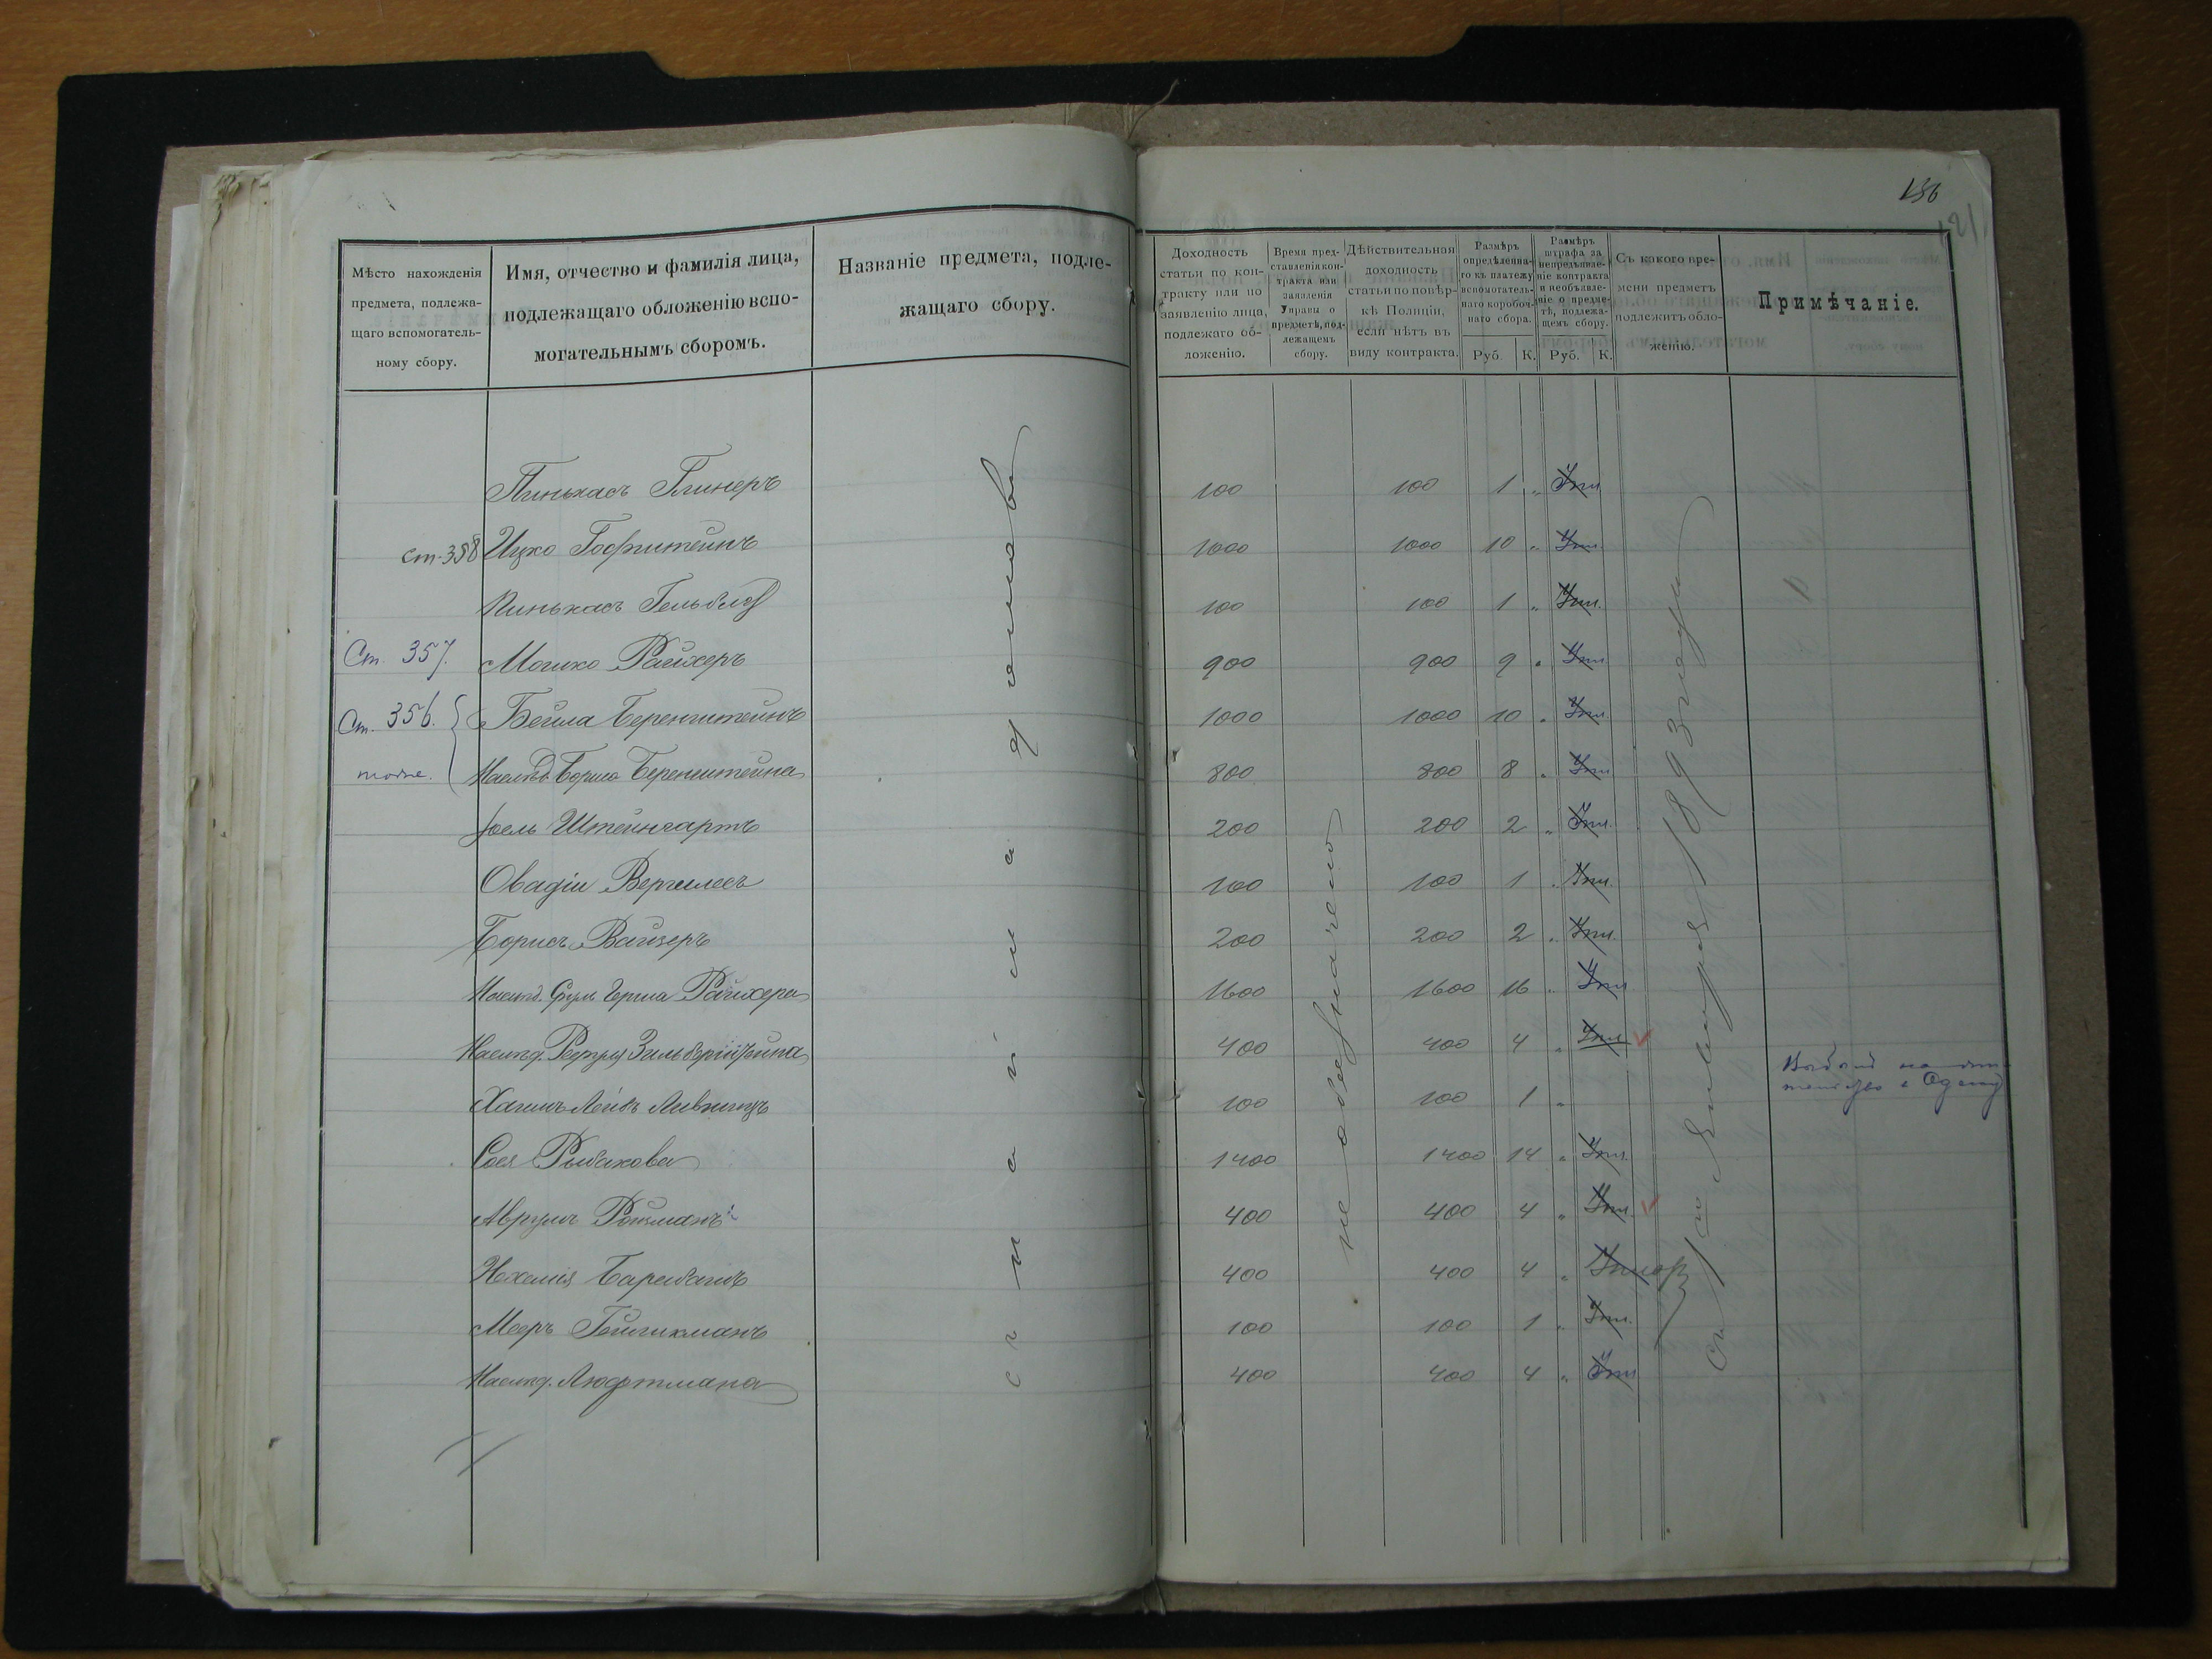 156
Мѣсто нахожденія
предмета, подлежа-
щаго вспомогатель-
ному сбору.
Имя, отчество и фамилія лица,
подлежащаго обложенію вспо-
могательнымъ сборомъ.
Названіе предмета, подле-
жащаго сбору.
Доходность
статьи по кон-
тракту или по
заявленію лица,
подлежаго об-
ложенію.
Время пред-
ставленія кон-
тракта или
заявленія
Управы о
предметѣ, под-
лежащемъ
сбору.
Дѣйствительная
доходность
статьи по повѣр-
кѣ Полиціи,
если нѣтъ въ
виду контракта.
Размѣръ
опредѣленна-
го къ платежу
вспомогатель-
наго коробоч-
наго сбора.
Руб. К.
Размѣръ
штрафа за
непредъявле-
ніе контракта
и необъявле-
ніе о предме-
тѣ, подлежа-
щемъ сбору.
Руб. К.
Съ какого вре-
мени предметъ
подлежитъ обло-
женію.
Примѣчаніе.
Пинькасъ Глинеръ 100 100 1 "
ст. 358 Ицко Гофштейнъ 1000 1000 10 "
Пинькасъ 100 100 1 "
Ст. 357. Мошко Райхеръ 900 900 9 "
Ст. 356. Бейла Беренштейнъ 1000 1000 10 "
тоже. Наслѣд. Бориса Беренштейна 800 800 8 "
Іоель Штейнгартъ 200 200 2 "
Овадія Вергелесъ 100 100 1 "
Борисъ Вайзеръ 200 200 2 "
Наслѣд. Срул Герша Райхера 1600 1600 16 "
Наслѣд. Зильберштейна 400 400 4 "
Хаимъ Лейбъ 100 100 1 "
Сося Рыбакова 1400 1400 14 "
Аврумъ Ройзманъ 400 400 4 "
Нехемія 400 400 4 "
Мееръ Гейликманъ 100 100 1 "
Наслѣд. Люфтмана 400 400 4 "
съ найма домовъ
не обозначено
Съ 1го Января 1893 года